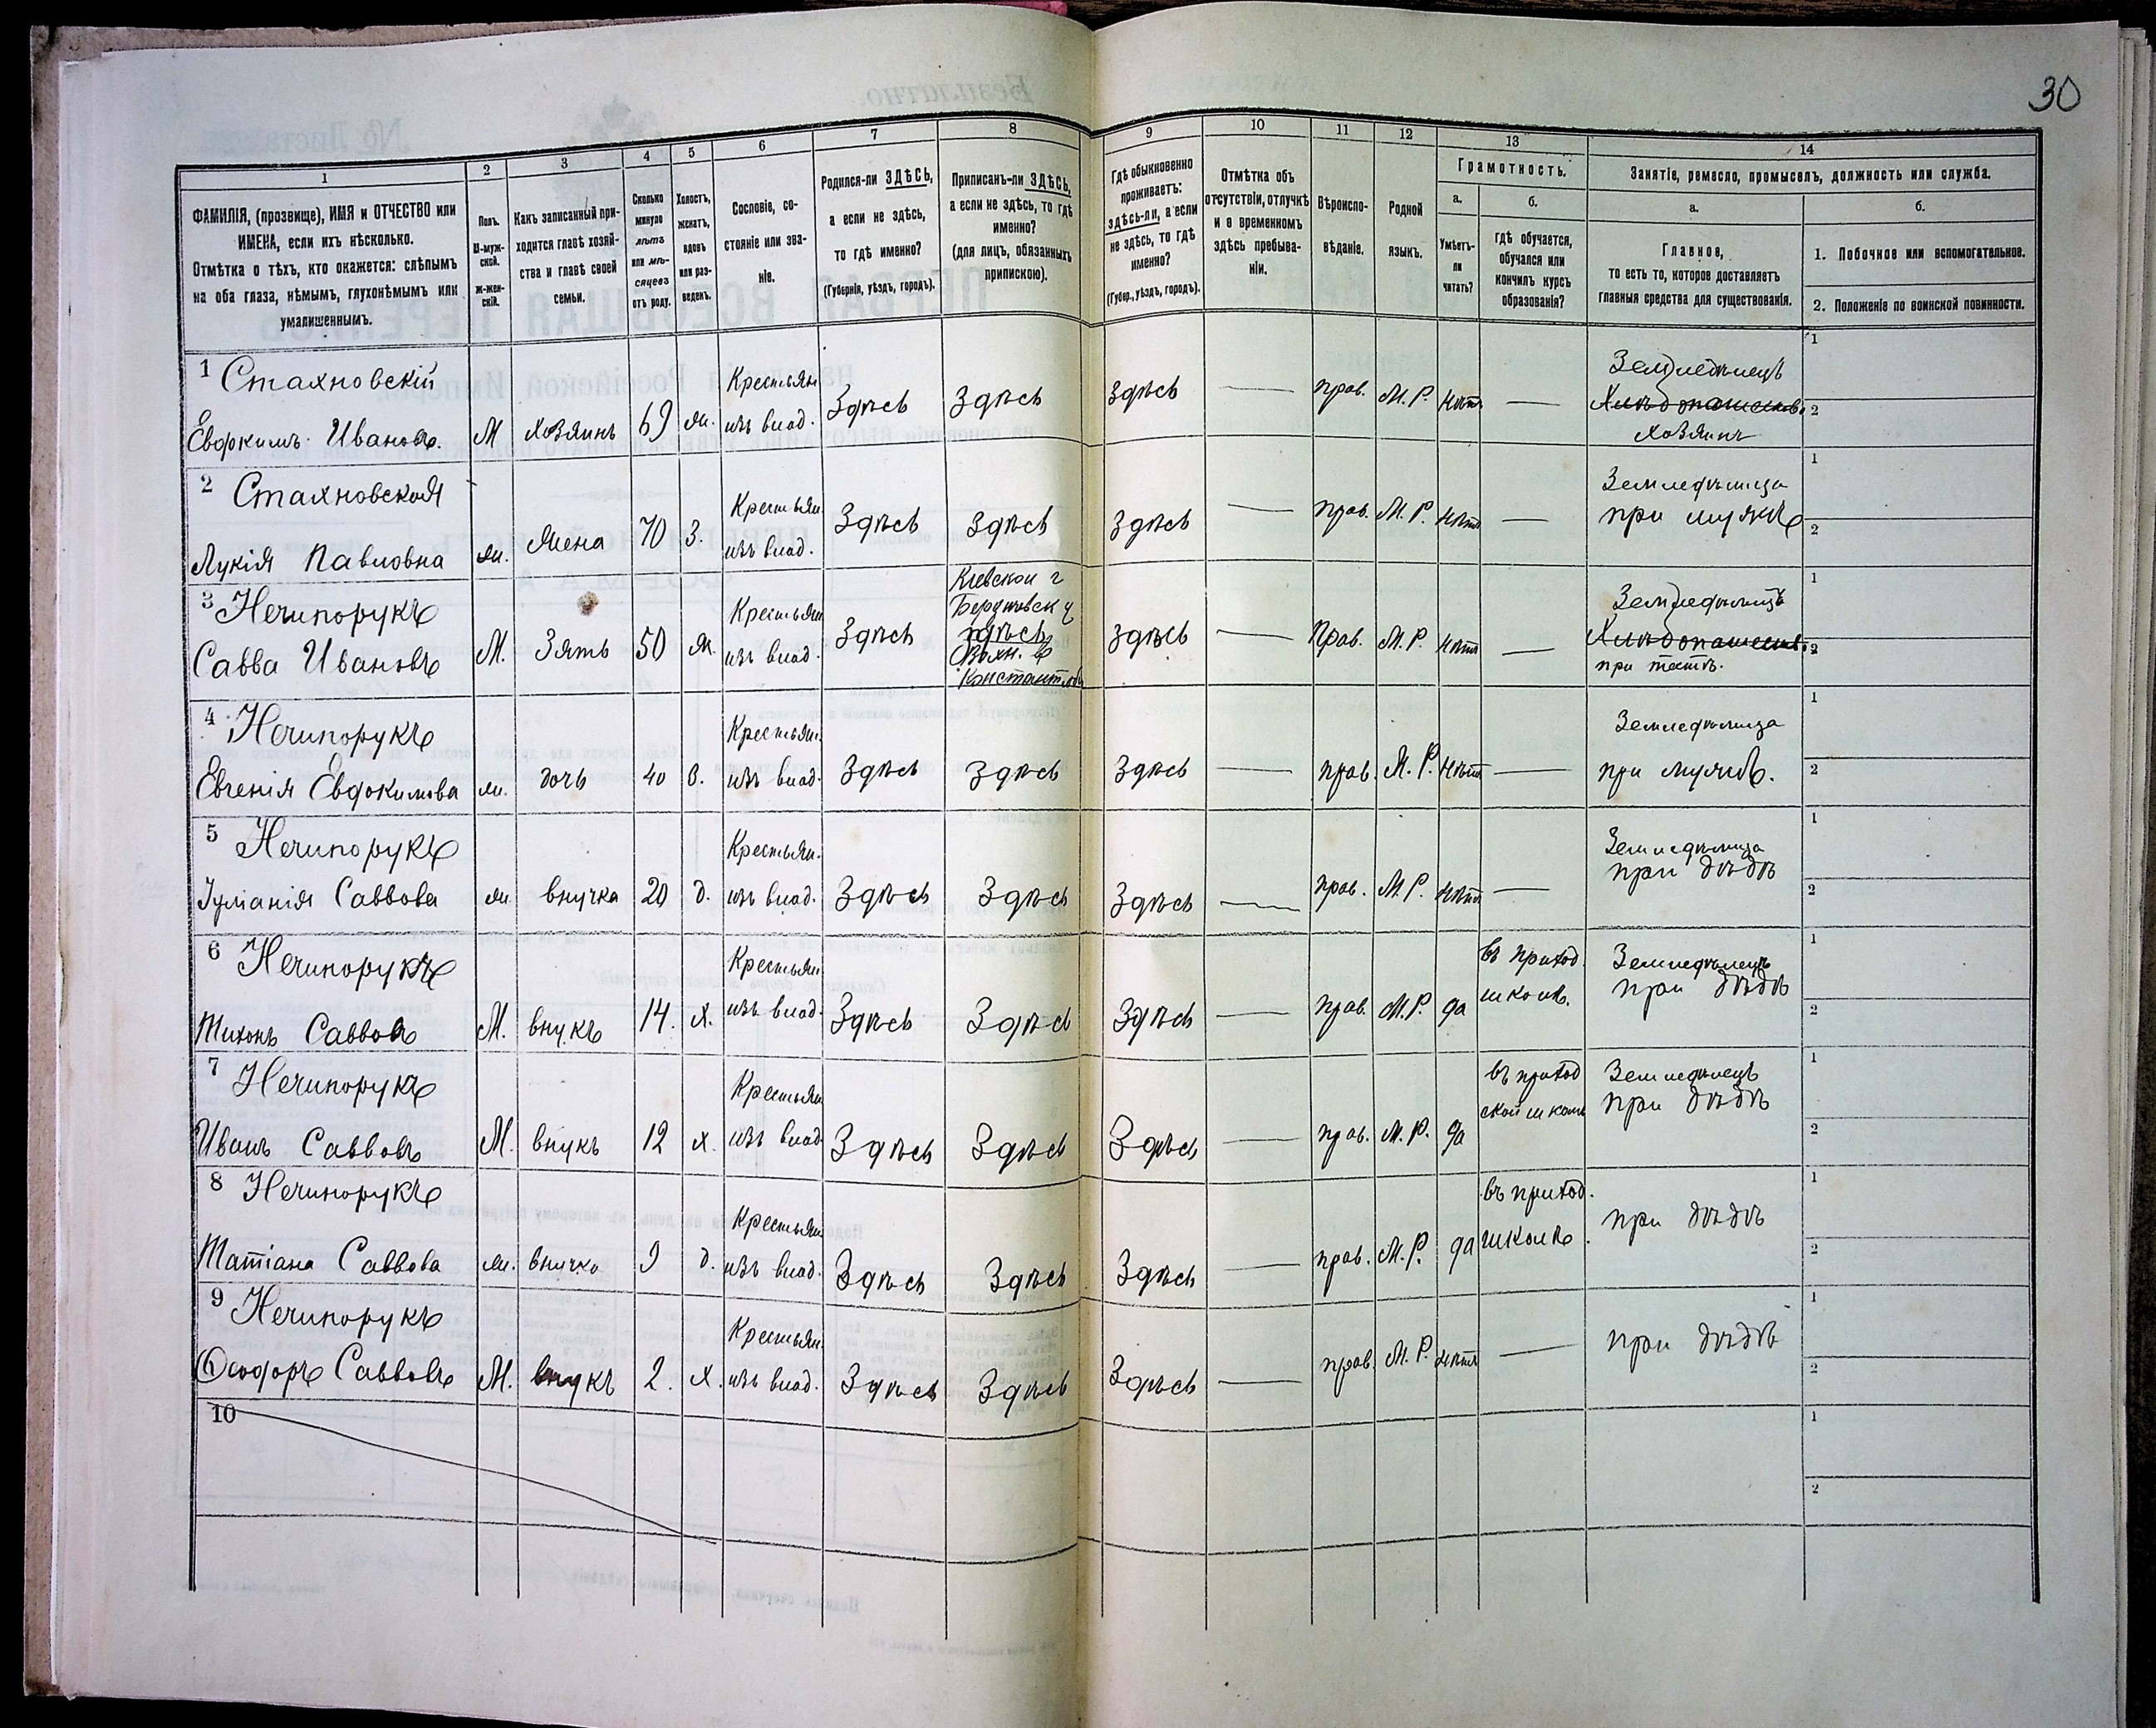 30
1
2
3
4
5
6
7
8
9
10
11
12
13
14
ФАМИЛІЯ, (прозвище), ИМЯ и ОТЧЕСТВО или
ИМЕНА, если ихъ нѣсколько.
Отмѣтка о тѣхъ, кто окажется: слѣпымъ
на оба глаза, нѣмымъ, глухонѣмымъ или
умалишеннымъ.
Полъ.
М-муж-
ской.
Ж-жен-
скій.
Какъ записанный при-
ходится главѣ хозяй-
ства и главѣ своей
семьи.
Сколько
минуло
лѣтъ
или мѣ-
сяцевъ
отъ роду.
Холостъ,
женатъ,
вдовъ
или раз-
веденъ.
Сословіе, со-
стояніе или зва-
ніе.
Родился-ли ЗДѢСЬ,
а если не здѣсь,
то гдѣ именно?
(Губернія, уѣздъ, городъ).
Приписанъ-ли ЗДѢСЬ,
а если не здѣсь, то гдѣ
именно?
(для лицъ, обязанныхъ
припискою).
Гдѣ обыкновенно
проживаетъ:
ЗДѢСЬ-ли, а если
не здѣсь, то гдѣ
именно?
(Губер., уѣздъ, городъ).
Отмѣтка объ
отсутствіи, отлучкѣ
и о временномъ
здѣсь пребыва-
ніи.
Вѣроиспо-
вѣданіе.
Родной
языкъ.
Грамотность.
а.
Умѣетъ-
ли
читать?
б.
гдѣ обучается,
обучался или
кончилъ курсъ
образованія?
Занятіе, ремесло, промыселъ, должность или служба.
а.
Главное,
то есть то, которое доставляетъ
главныя средства для существованія.
б.
1. Побочное или вспомогательное.
2. Положеніе по воинской повинности.
1 Стахновскій
Евдокимъ Ивановъ. М хозяинъ 69 ж. Крестьян изъ влад. Здѣсь Здѣсь Здѣсь — прав. М.Р. нѣтъ — Земледѣлецъ
Хлѣбопашецъ
хозяинъ
1
2
2 Стахновская
Лукія Павловна ж. жена 70 З. Крестьян изъ влад. Здѣсь Здѣсь Здѣсь — прав. М.Р. нѣтъ — Земледѣлица
при мужѣ
1
2
3 Нечипорукъ
Савва Ивановъ М. Зять 50 ж. Крестьян изъ влад. Здѣсь
Кіевской г
Бердичевск у
здѣсь
Константи
Здѣсь — Прав. М.Р. нѣтъ — Земледѣлецъ
Хлѣбопашецъ
при тестѣ.
1
2
4 Нечипорукъ
Евгенія Евдокимова ж. дочь 40 З. Крестьян. изъ влад. Здѣсь Здѣсь Здѣсь — прав. М.Р. нѣтъ — Земледѣлица
при мужѣ.
1
2
5 Нечипорукъ
Саввова ж внучка 20 д. Крестьян. изъ влад. Здѣсь Здѣсь Здѣсь — прав. М.Р. нѣтъ — Земледѣлица
при дѣдѣ
1
2
6 Нечипорукъ
Тихонъ Саввовъ М. внукъ 14. х. Крестьян изъ влад. Здѣсь Здѣсь Здѣсь — прав. М.Р. да въ приход.
школѣ.
Земледѣлецъ
при дѣдѣ
1
2
7 Нечипорукъ
Иванъ Саввовъ М. внукъ 12 х. Крестьян изъ влад. Здѣсь Здѣсь Здѣсь — прав. М.Р. да въ приход
ской школѣ
Земледѣлецъ
при дѣдѣ
1
2
8 Нечипорукъ
Татіана Саввова ж. внучка 9 д. Крестьян изъ влад. Здѣсь Здѣсь Здѣсь — прав. М.Р. да въ приход.
школѣ.
при дѣдѣ
1
2
9 Нечипорукъ
Ѳеодоръ Саввовъ М. внукъ 2. х. Крестьян. изъ влад. Здѣсь Здѣсь Здѣсь — прав. М.Р. нѣтъ — при дѣдѣ
1
2
10
1
2